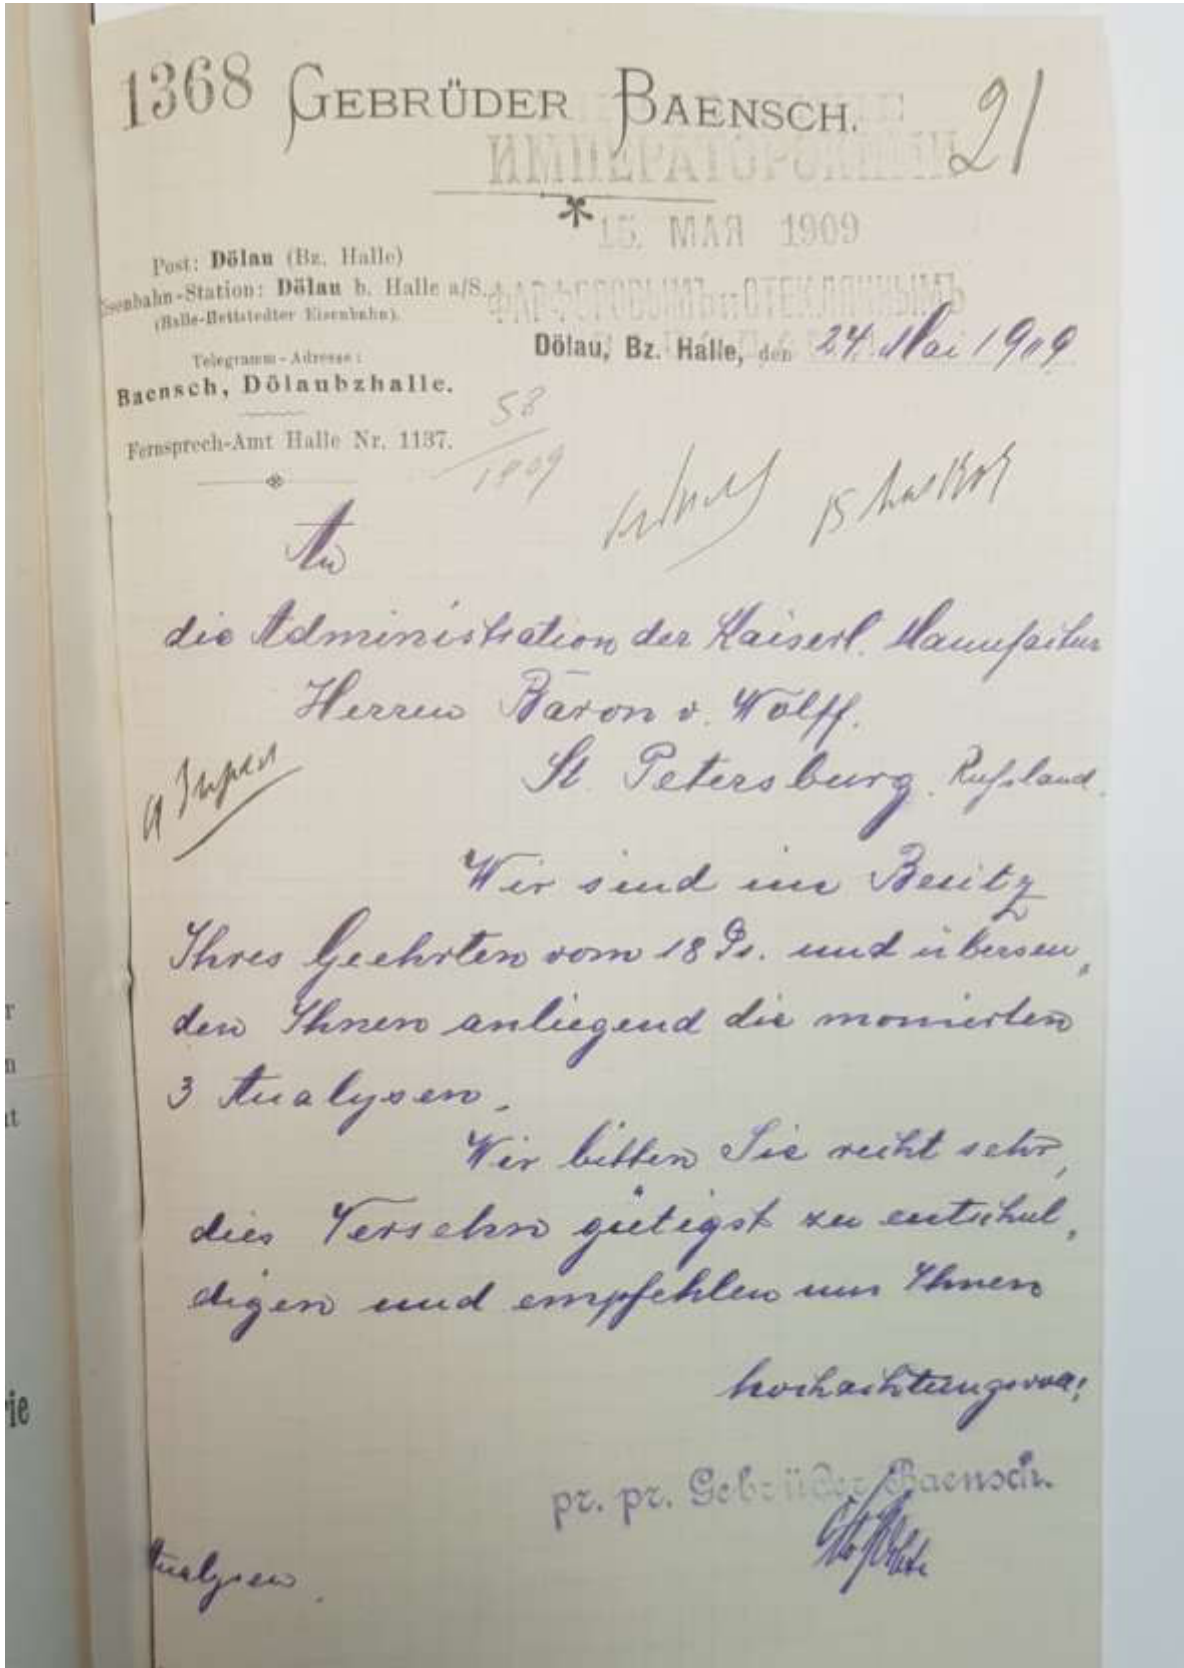 1368
GEBRÜDER BAENSCH.
21
ИМПЕРАТОРСКИМИ
15. МАЯ 1909
ФАРФОРОВЫМЪ и СТЕКЛЯННЫМЪ
Post: Dölau (Bz. Halle)
Eisenbahn-Station: Dölau b. Halle a/S.
(Halle-Hettstedter Eisenbahn).
Telegramm-Adresse:
Baensch, Dölaubzhalle.
Fernsprech-Amt Halle Nr. 1137.
Dölau, Bz. Halle, den 24. Mai 1909
58
1909
An
die Administration der Kaiserl. Manufactur
Herren Baron v. Wolff.
St. Petersburg. Russland.
Wir sind im Besitz
Ihres Geehrten vom 18 Ds. und übersen„
den Ihnen anliegend die monierten
3 Analysen.
Wir bitten Sie recht sehr,
dies Versehn gütigst zu entschul„
digen und empfehlen uns Ihnen
hochachtungsvoll
pr. pr. Gebrüder Baensch.
Analysen.
rie